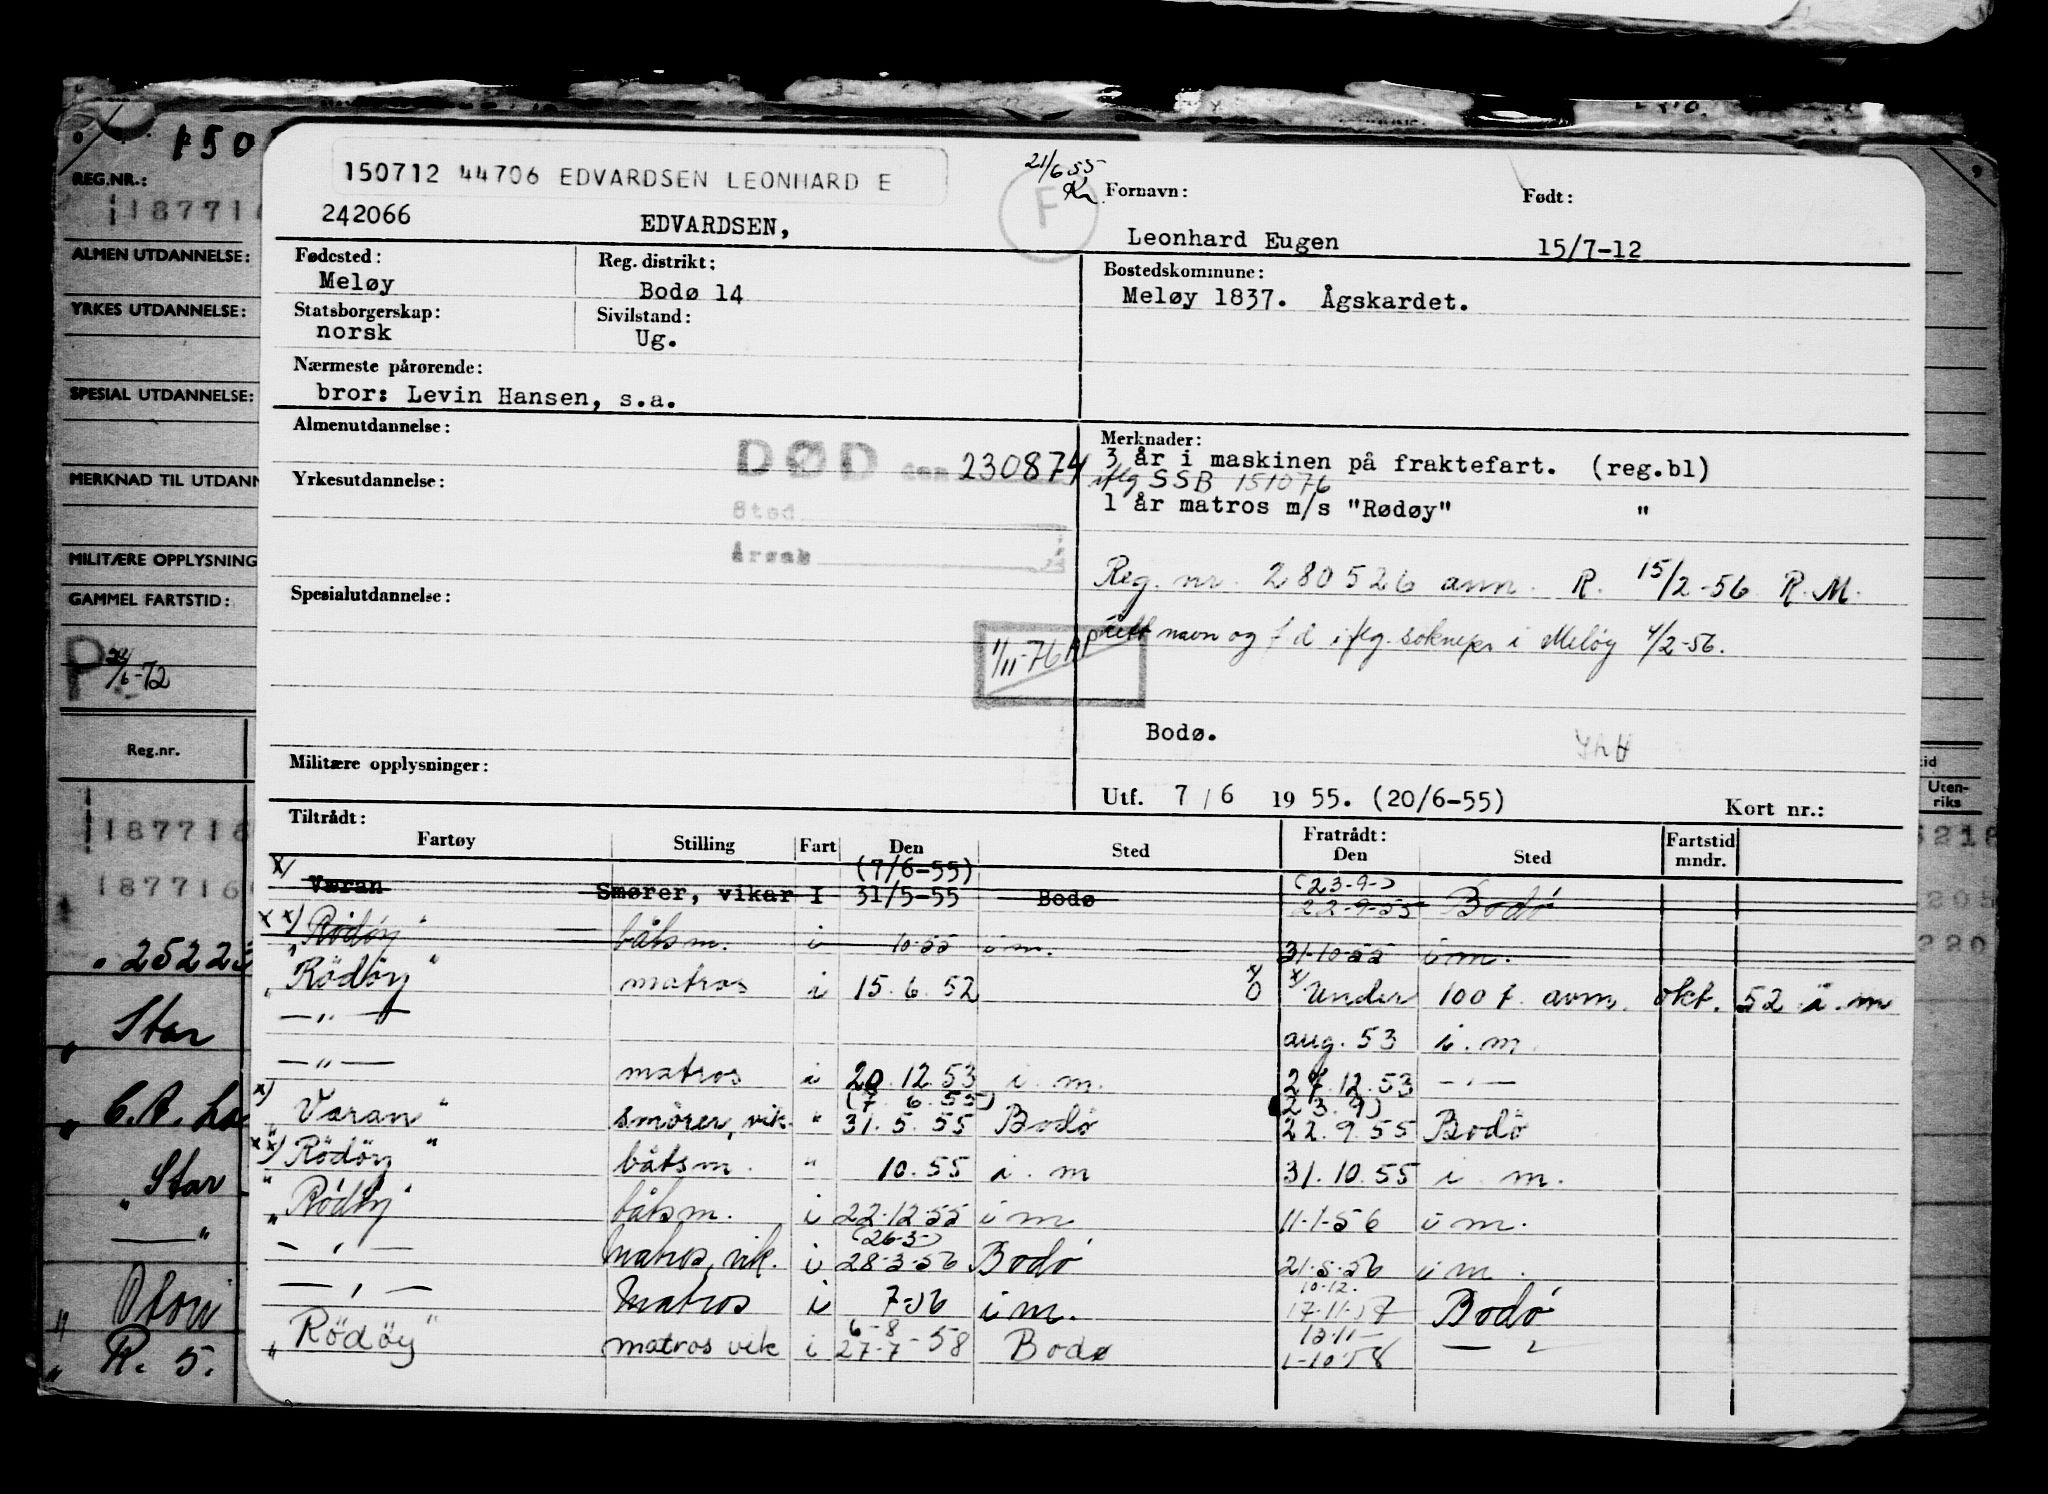 150712 44706 EDVARDSEN LEONHARD E
21/6 55
F
Fornavn:
Født:
242066 EDVARDSEN, Leonhard Eugen 15/7-12
Fødested: Reg. distrikt: Bostedskommune:
Meløy Bodø 14 Meløy 1837. Ågskardet.
Statsborgerskap: Sivilstand:
norsk Ug.
Nærmeste pårørende:
bror: Levin Hansen, s.a.
Almenutdannelse: Merknader:
DØD den 230874 3 år i maskinen på fraktefart. (reg.bl)
Yrkesutdannelse: iflg SSB 151076
Sted 1 år matros m/s "Rødøy" "
Årsak
Reg. nr. 280526 ann. R. 15/2-56 R.M.
Spesialutdannelse:
1/11-76 rett navn og f d iflg. soknepr i Meløy 4/2-56.
Bodø.
Militære opplysninger:
Utf. 7 / 6 1955. (20/6-55) Kort nr.:
Tiltrådt: Fratrådt:
Fartøy Stilling Fart Den Sted Den Sted Fartstid mndr.
(7/6-55) (23-9-)
x/ Væran Smører, vikar I 31/5-55 Bodø 22-9-55 Bodø
xx) "Rödöy" båtsm. i 10-55 i m. 31-10-55 i m.
"Rödöy" matros i 15. 6. 52 x/ 0 x/ Under 100 t. avm. okt. 52 i. m
— " — aug. 53 i. m.
— " — matros i 20. 12. 53 i. m. 27. 12. 53 — " —
(7. 6. 55) (23. 9)
x) "Væran" smörer, vik. " 31. 5. 55 Bodö 22. 9. 55 Bodö
xx) "Rödöy" båtsm. " 10. 55 i. m 31. 10. 55 i. m.
"Rödöy" båtsm. i 22-12-55 i m 11-1-56 i m.
(26-3-)
— " — matros, vik. i 28-3-56 Bodö 21-5-56 i m.
10-12.
— " — Matros i 7-56 i m. 17-11-57 Bodö
6-8
"Rödöy" matros vik i 27-7-58 Bodø 1-10-58 — " —
150
REG.NR.:
187716
ALMEN UTDANNELSE:
YRKES UTDANNELSE:
SPESIAL UTDANNELSE:
MERKNAD TIL UTDANN
MILITÆRE OPPLYSNING
GAMMEL FARTSTID:
P 6-72
Reg.nr.
187716
187716
" 25223
" Star
" Star
— " —
" R. 5.
tid
Uten-
riks
5218
205
220